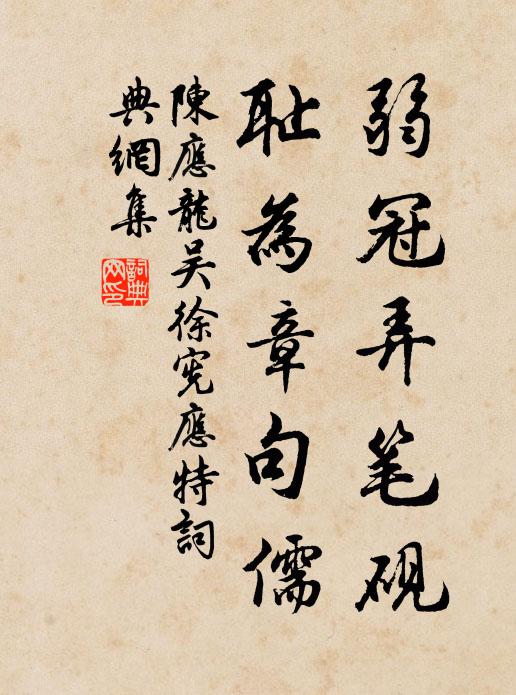 弱冠弄笔砚
耻為章句儒
陳應龍吴徐宪應特詞
典網集
詞典
网印